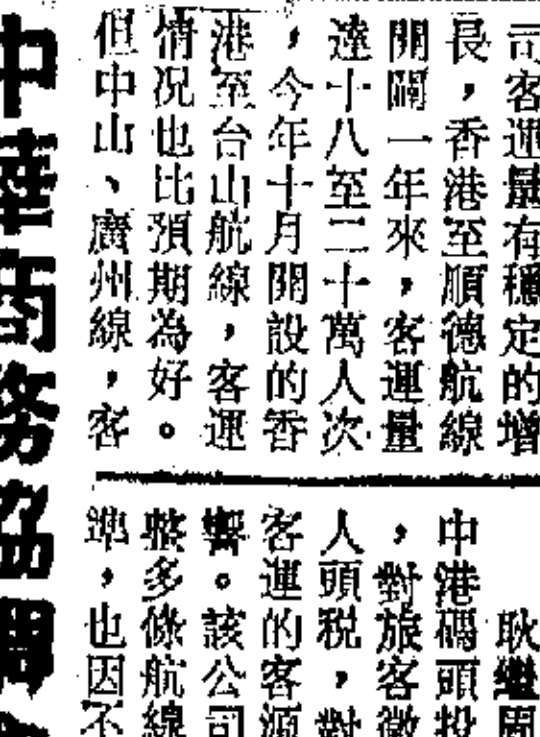 司客運量有穩定的增
長，香港至順德航線
開闢一年來，客運量
達十八至二十萬人次
，今年十月開設的香
港至台山航線，客運
情况也比預期為好。
但中山、廣州線，客
耿繼周
中港碼頭投
，對旅客徵
人頭税，對
客運的客源
響。該公司
整多條航線
準，也因不
中華商務協調